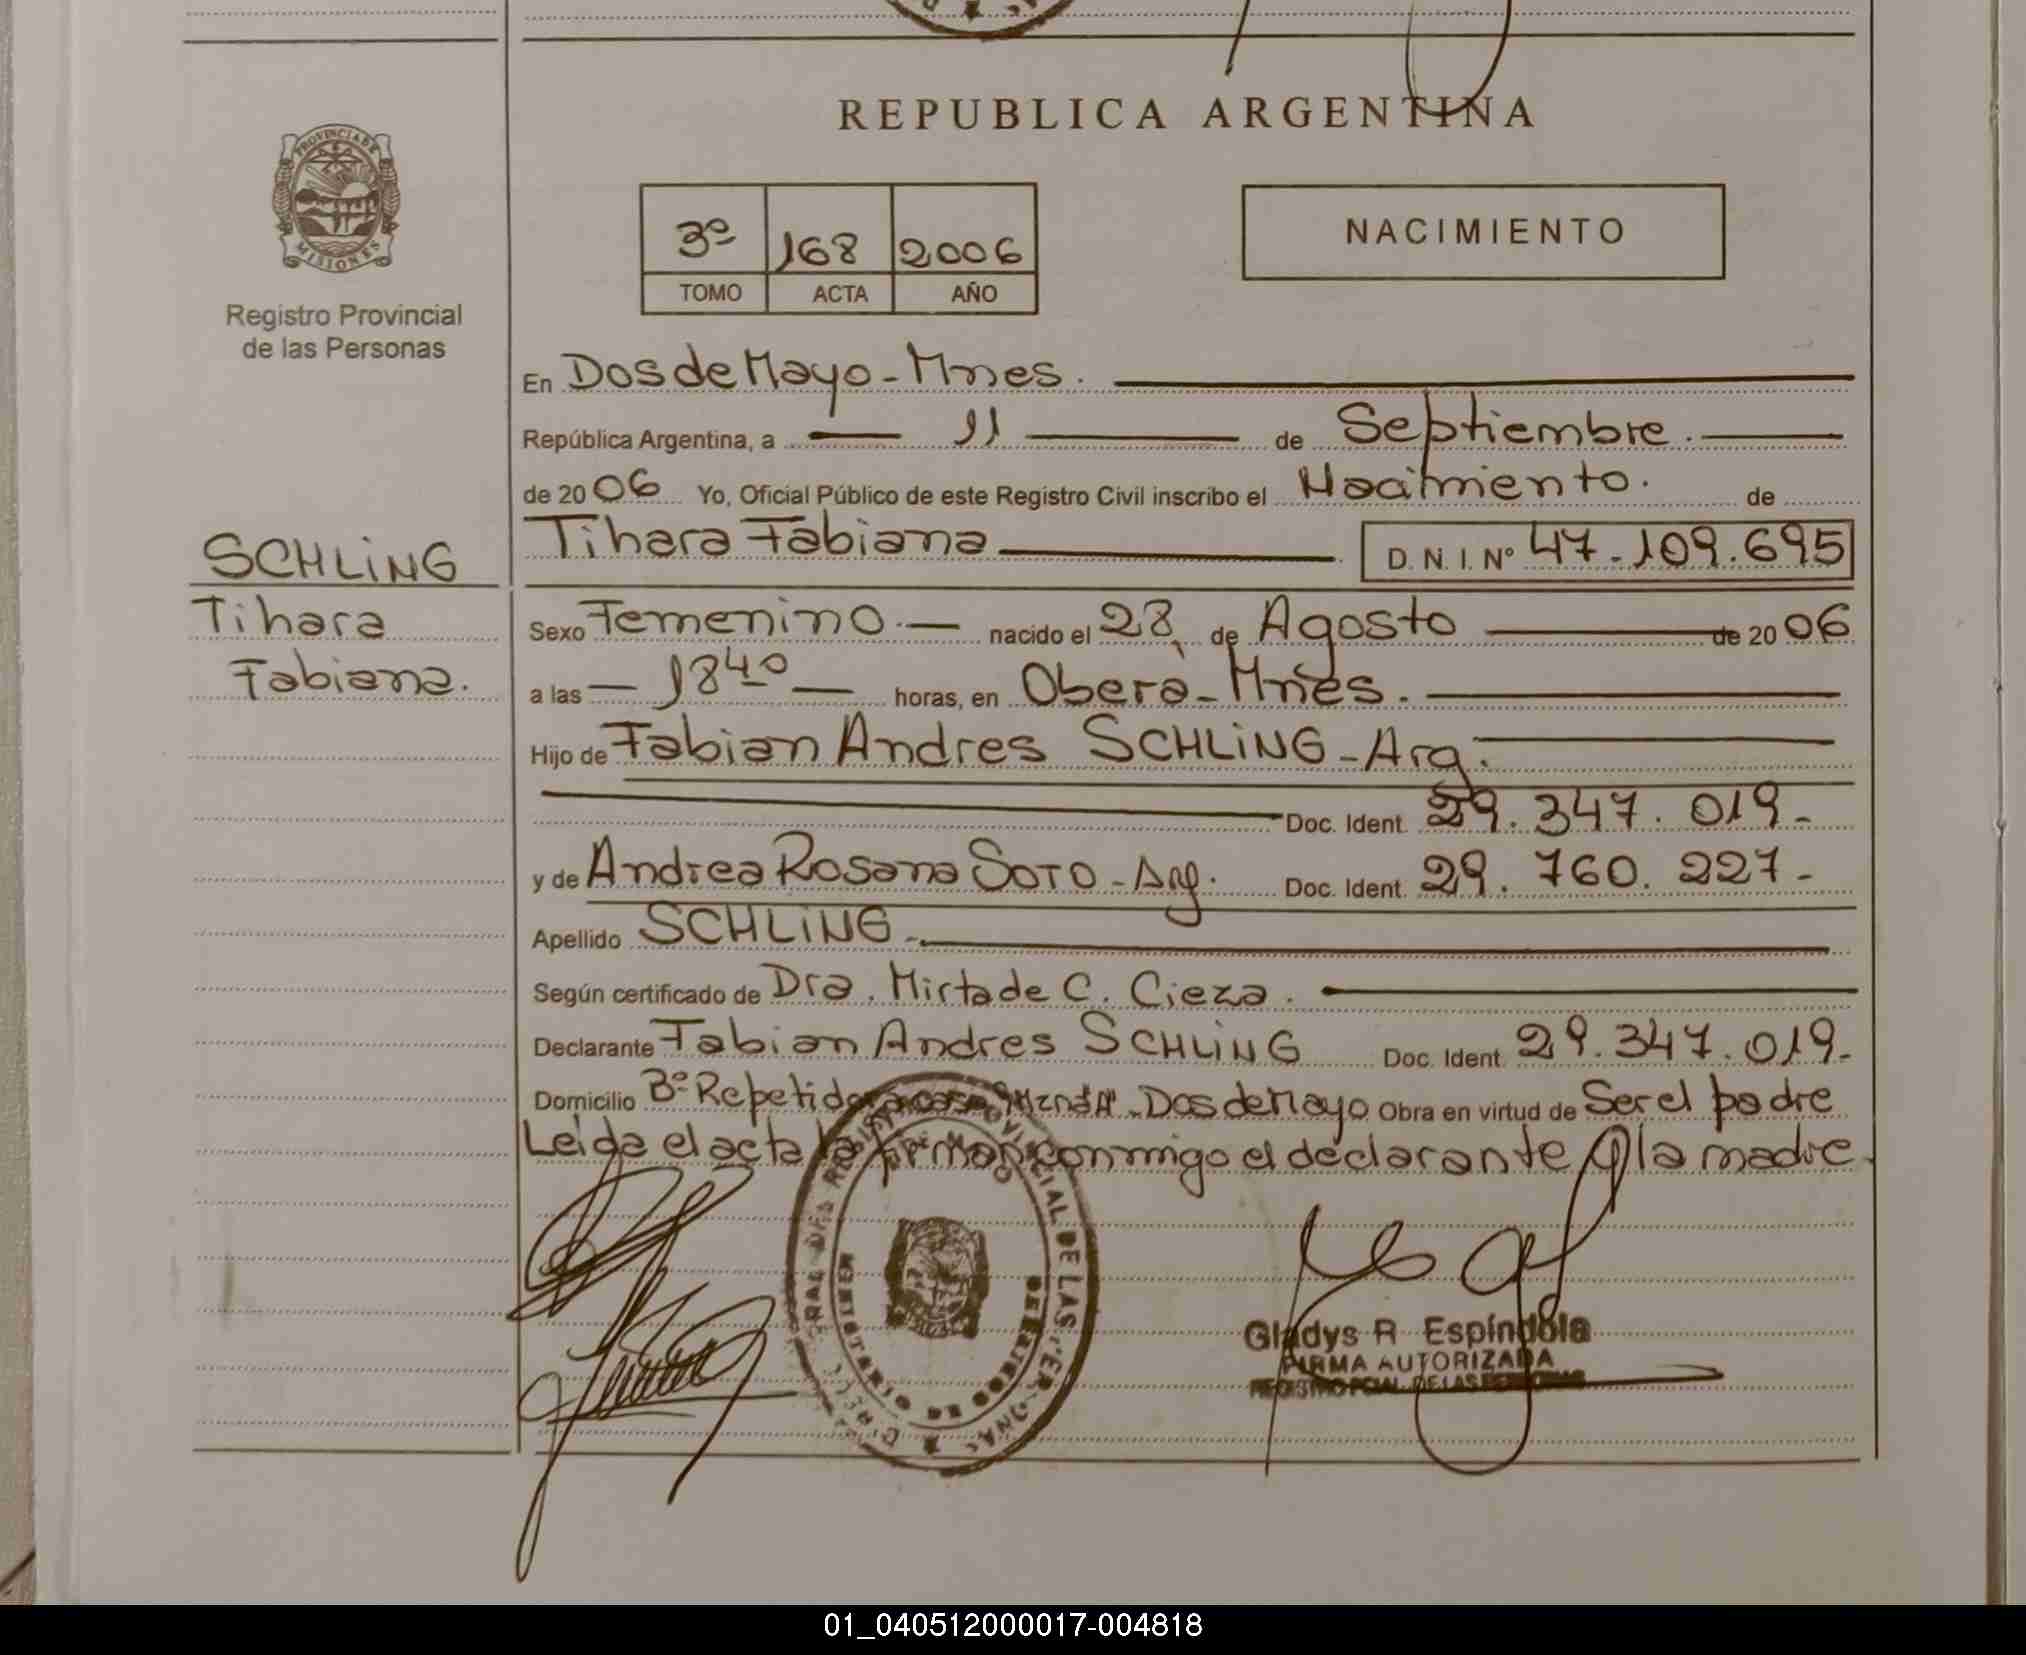 REPUBLICA ARGENTINA
PROVINCIA DE
MISIONES
Registro Provincial
de las Personas
3º 168 2006
TOMO ACTA AÑO
NACIMIENTO
En Dos de Mayo - Mnes.
República Argentina, a 11 de Septiembre.
de 2006 Yo, Oficial Público de este Registro Civil inscribo el Nacimiento. de
Tihara Fabiana D. N. I. Nº 47.109.695
SCHLiNG
Tihara
Fabiana.
Sexo Femenino. nacido el 28 de Agosto de 2006
a las 18 40 horas, en Oberà - Mnes.
Hijo de Fabian Andres SCHLiNG - Arg.
Doc. Ident. 29.347.019-
y de Andrea Rosana SOTO - Arg. Doc. Ident. 29.760.227-
Apellido SCHLiNG
Según certificado de Dra. Mirta de C. Cieza.
Declarante Fabian Andres SCHLiNG Doc. Ident. 29.347.019-
Domicilio Bº Repetidora casa Dos de Mayo Obra en virtud de Ser el padre
Leida el acta la firman conmigo el declarante y la madre.
Gladys R Espíndola
FIRMA AUTORIZADA
REGISTRO PCIAL. DE LAS PERSONAS
01_040512000017-004818